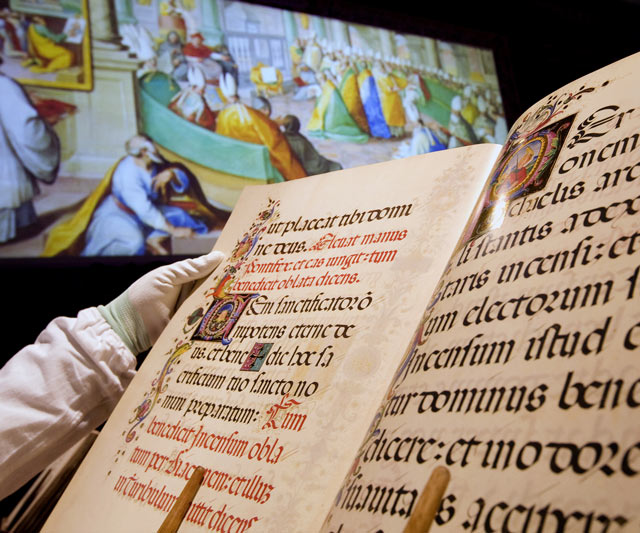 ut placeat tibi domi
ne deus. Eleuat manus
Pontifex: et eas iungit: tum
benedicit oblata dicens.
Veni sanctificator õ
mnipotens eterne de
us. et bene dic hoc sa
crificium tuo sancto no
mini preparatum: Tum
benedicit Incensum obla
tum per Diaconem: et illud
in thuribulum mittit dicens
Per
onem
chaelis arc
istantis a dex
taris incensi: et
um electorum s
incensum istud
tur dominus bene
dicere: et in odore
suauita accipere